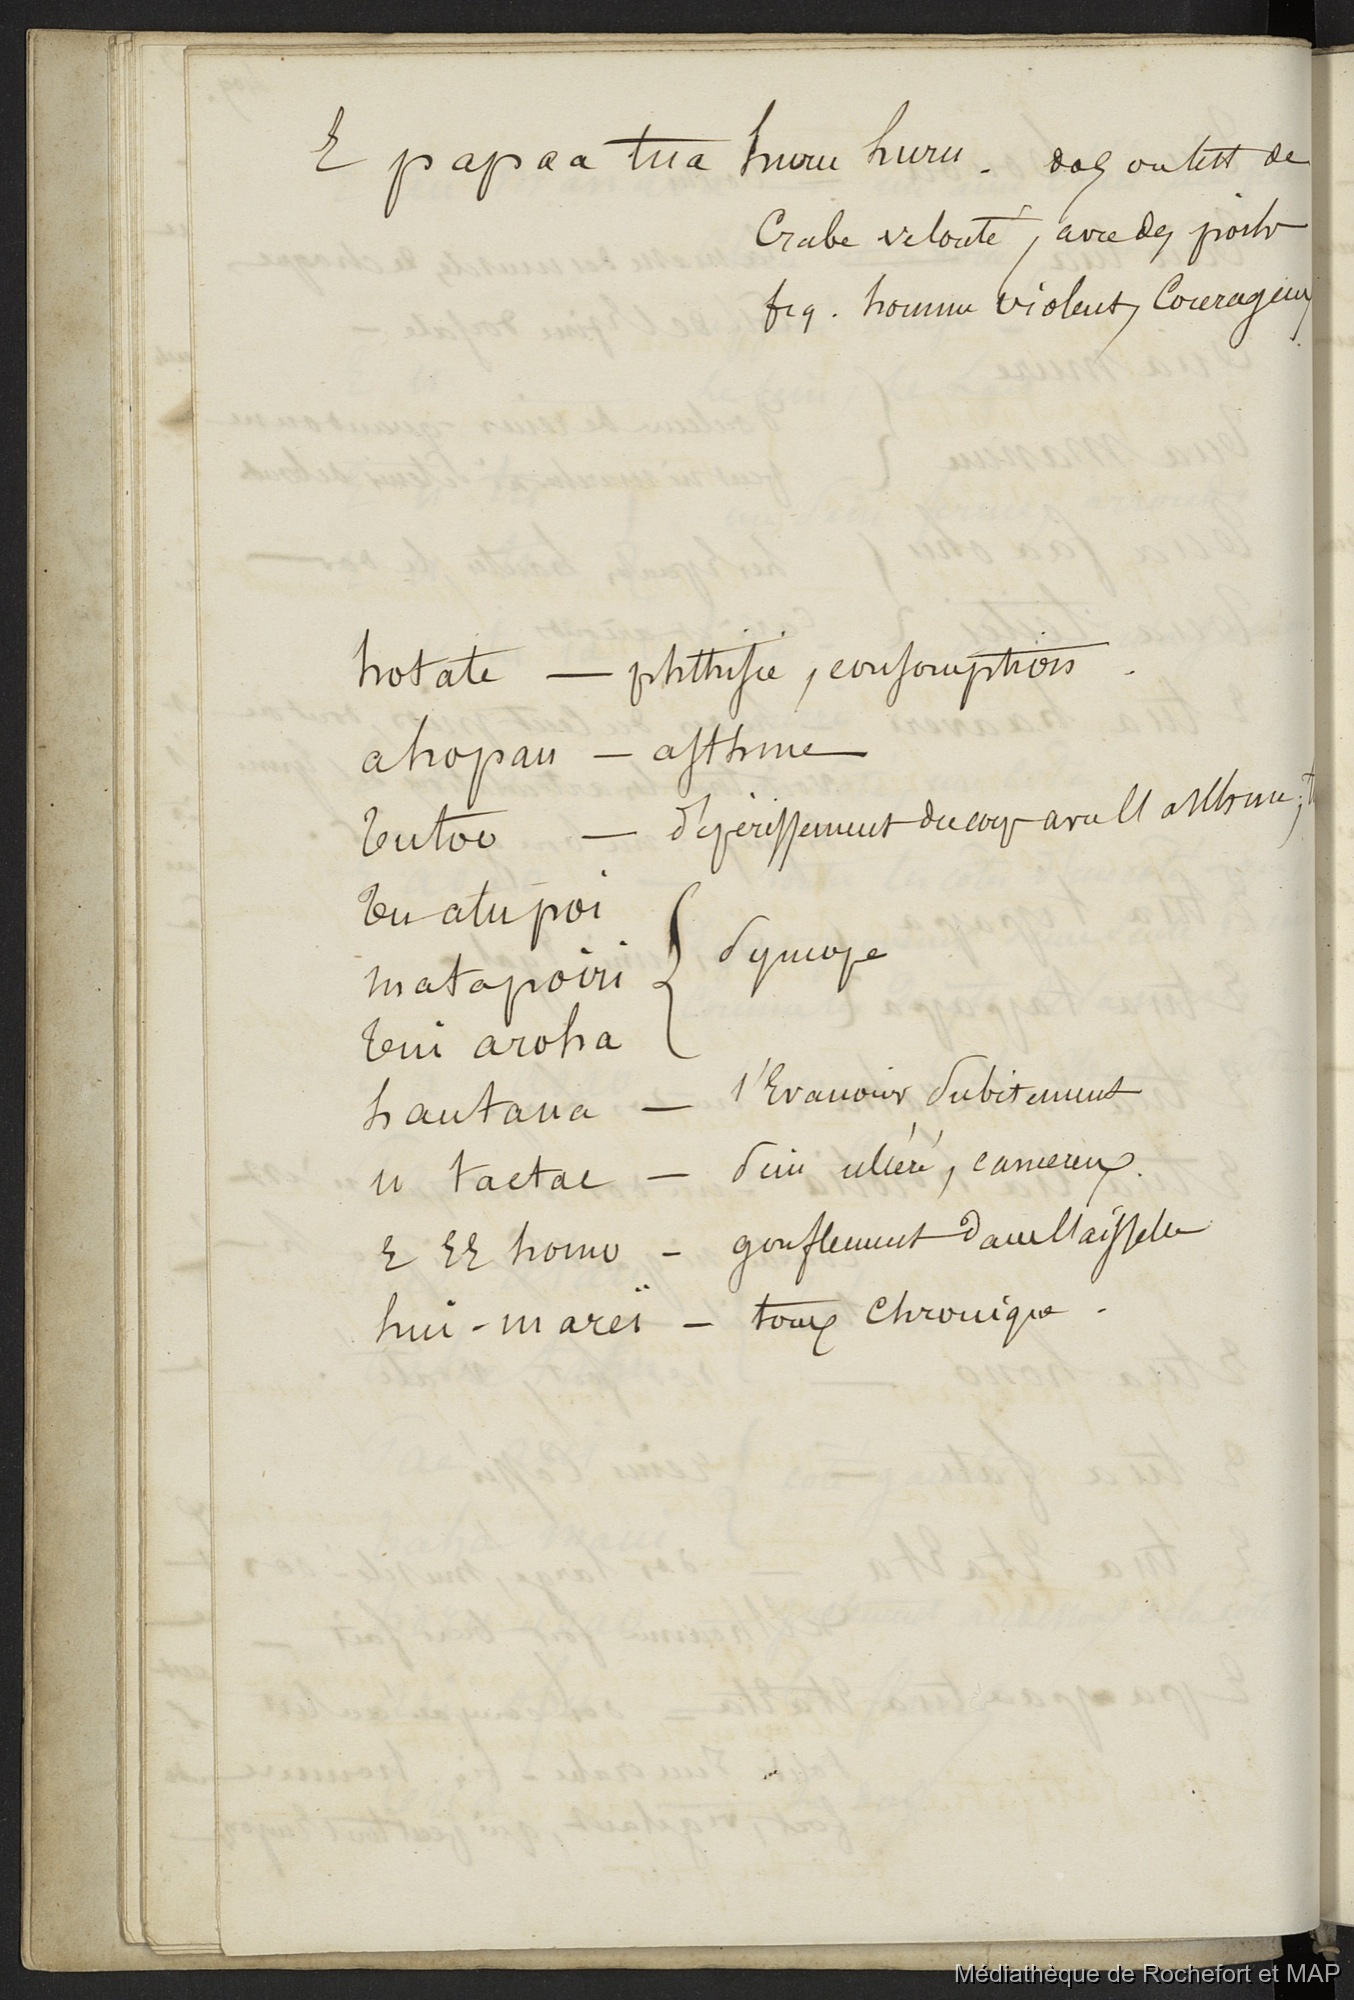 E papaa tua huru huru. dos ou test de
Crabe velouté, avec des poils
fig. homme violent, Courageux
hotate — phthisie, consomption.
ahopau — asthme
tutoo — dépérissement du corps avec l'asthme,
tu atupoi
matapoiri { syncope
tui aroha
hautaua — s'Evanouir subitement
u taetae — sein ulcéré, cancereux.
E EE homo — gonflement dans l'aisselle
hui-mareï — toux Chronique.
Médiathèque de Rochefort et MAP